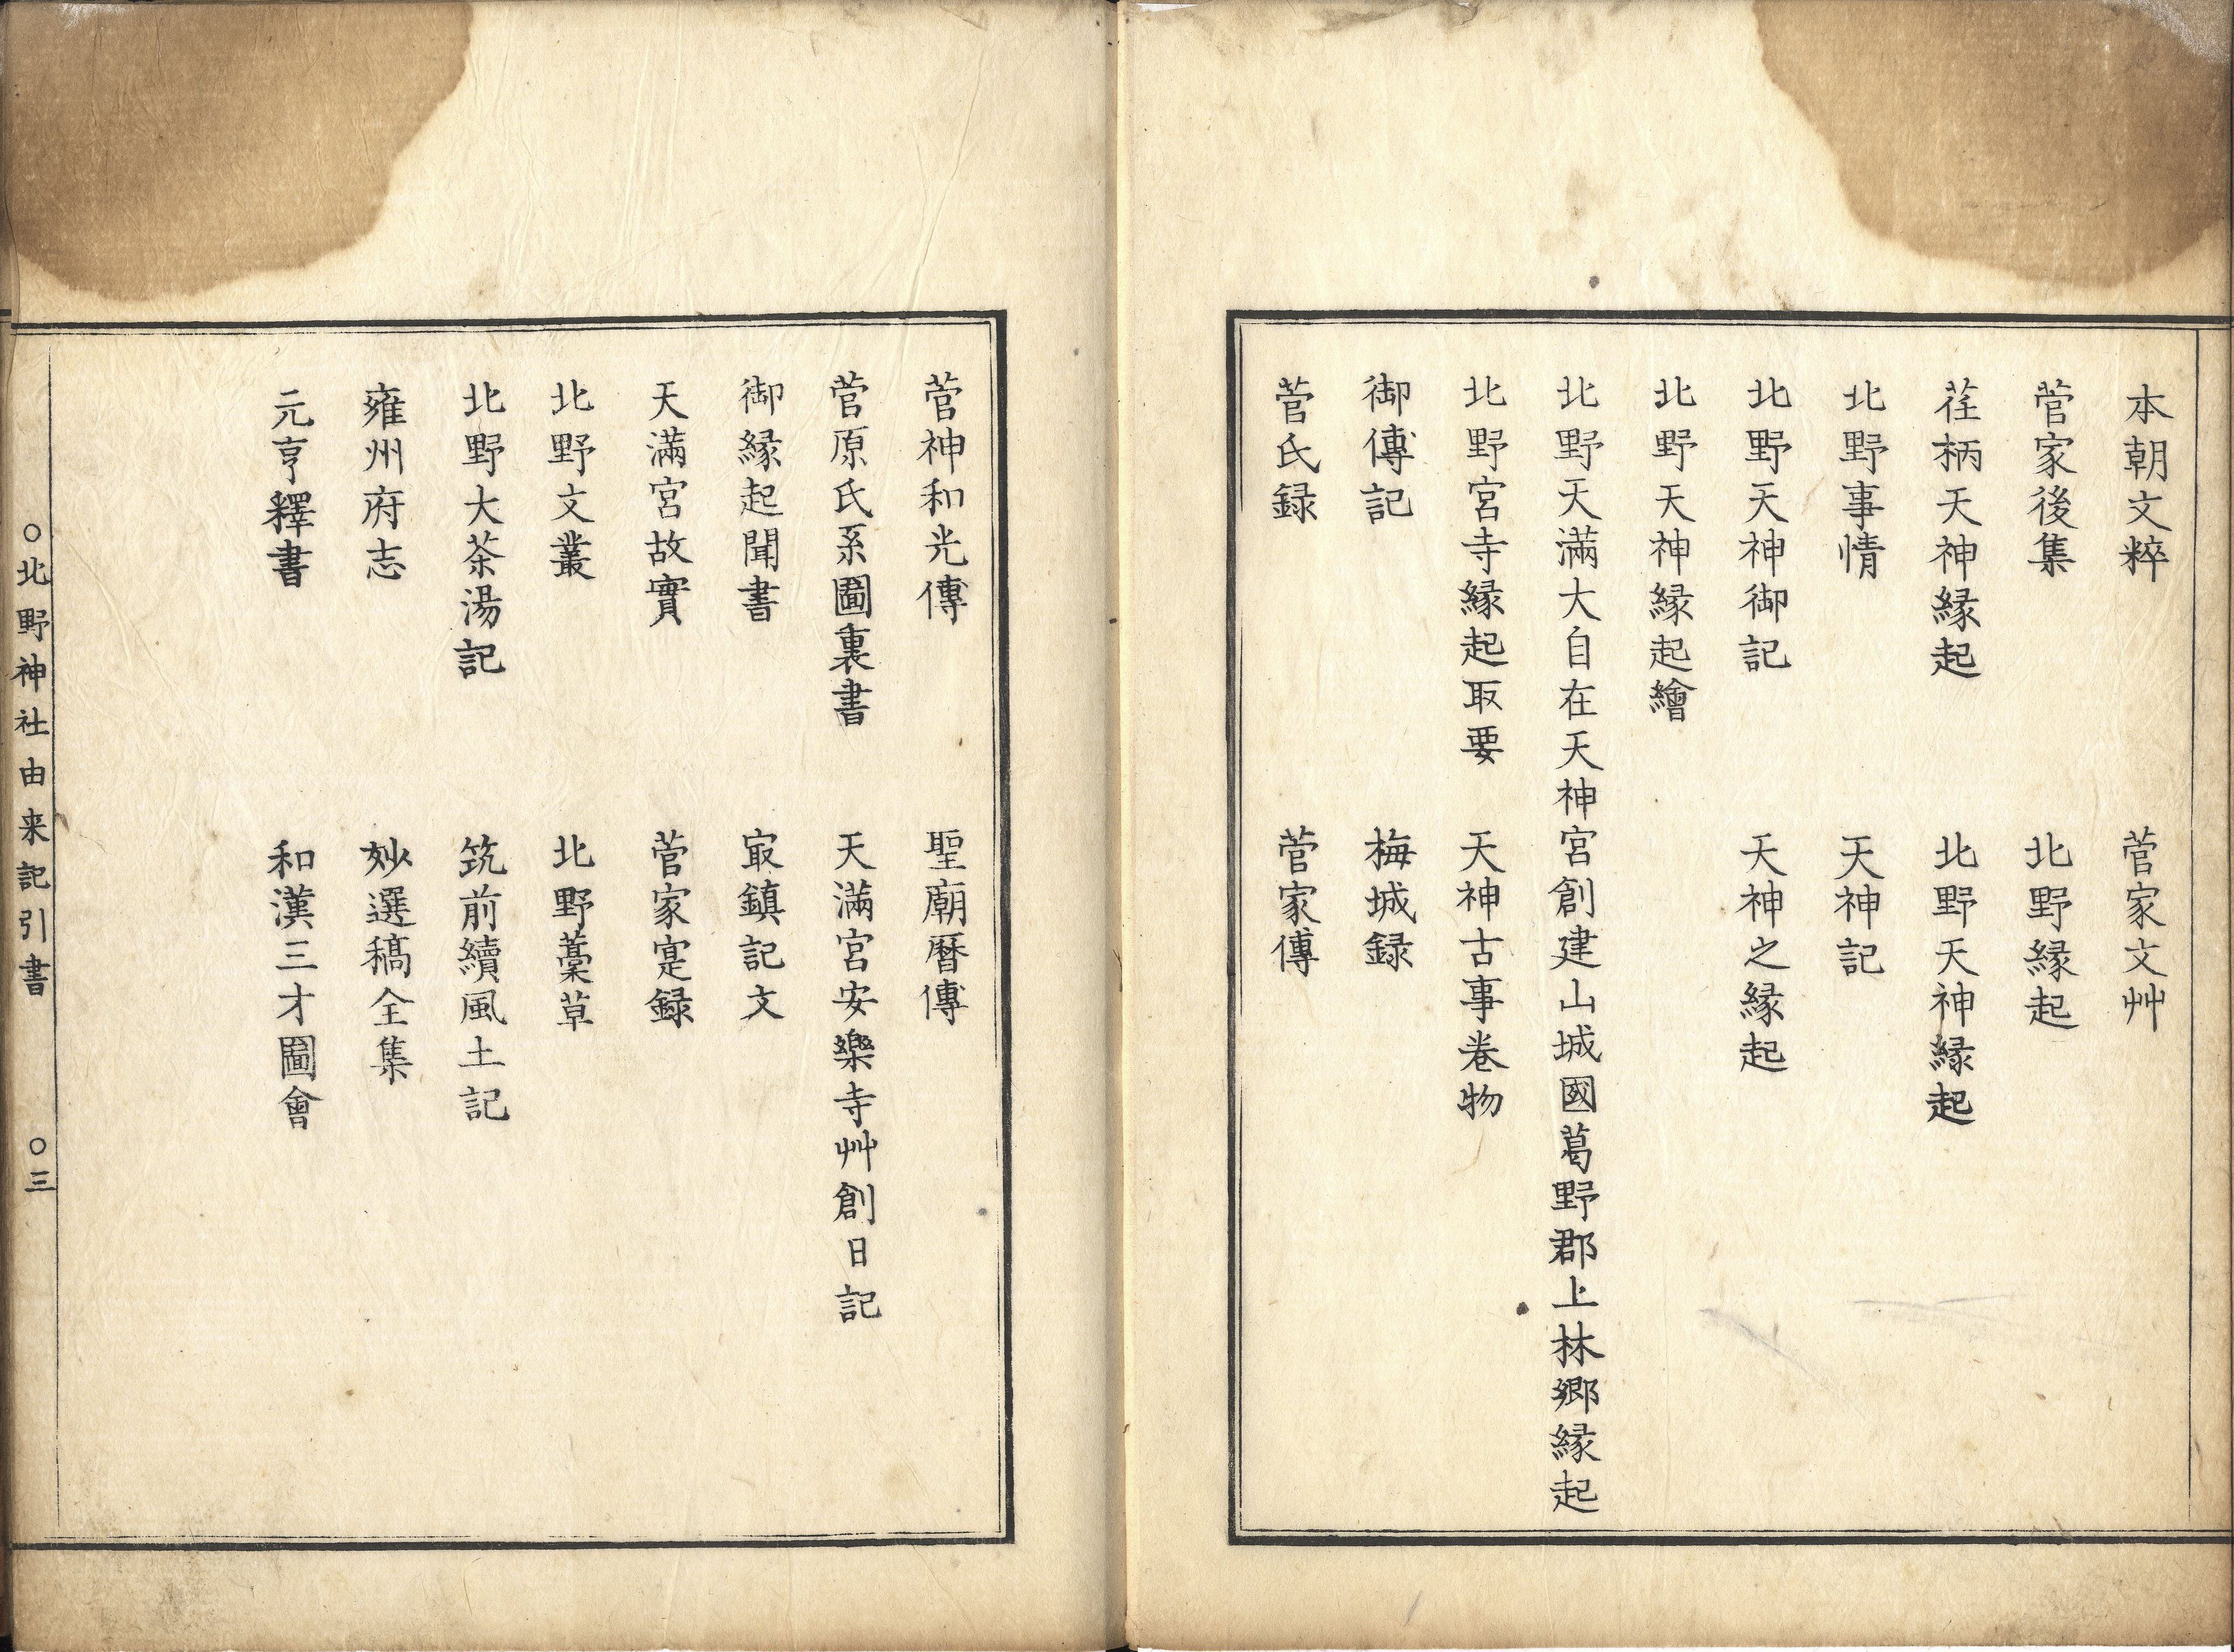 本朝文粹　菅家文艸
菅家後集　北野縁起
荏柄天神縁起　北野天神縁起
北野事情　天神記
北野天神御記　天神之縁起
北野天神縁起繪
北野天滿大自在天神宮創建山城國葛野郡上林郷縁起
北野宮寺縁起取要　天神古事卷物
御傳記　梅城録
菅氏録　菅家傳
菅神和光傳　聖廟暦傳
菅原氏系圖裏書　天滿宮安樂寺艸創日記
御縁起聞書　冣鎮記文
天滿宮故實　菅家寔録
北野文叢　北野藁草
北野大茶湯記　筑前續風土記
雍州府志　妙選稿全集
元亨釋書　和漢三才圖會
○北野神社由来記引書　○三